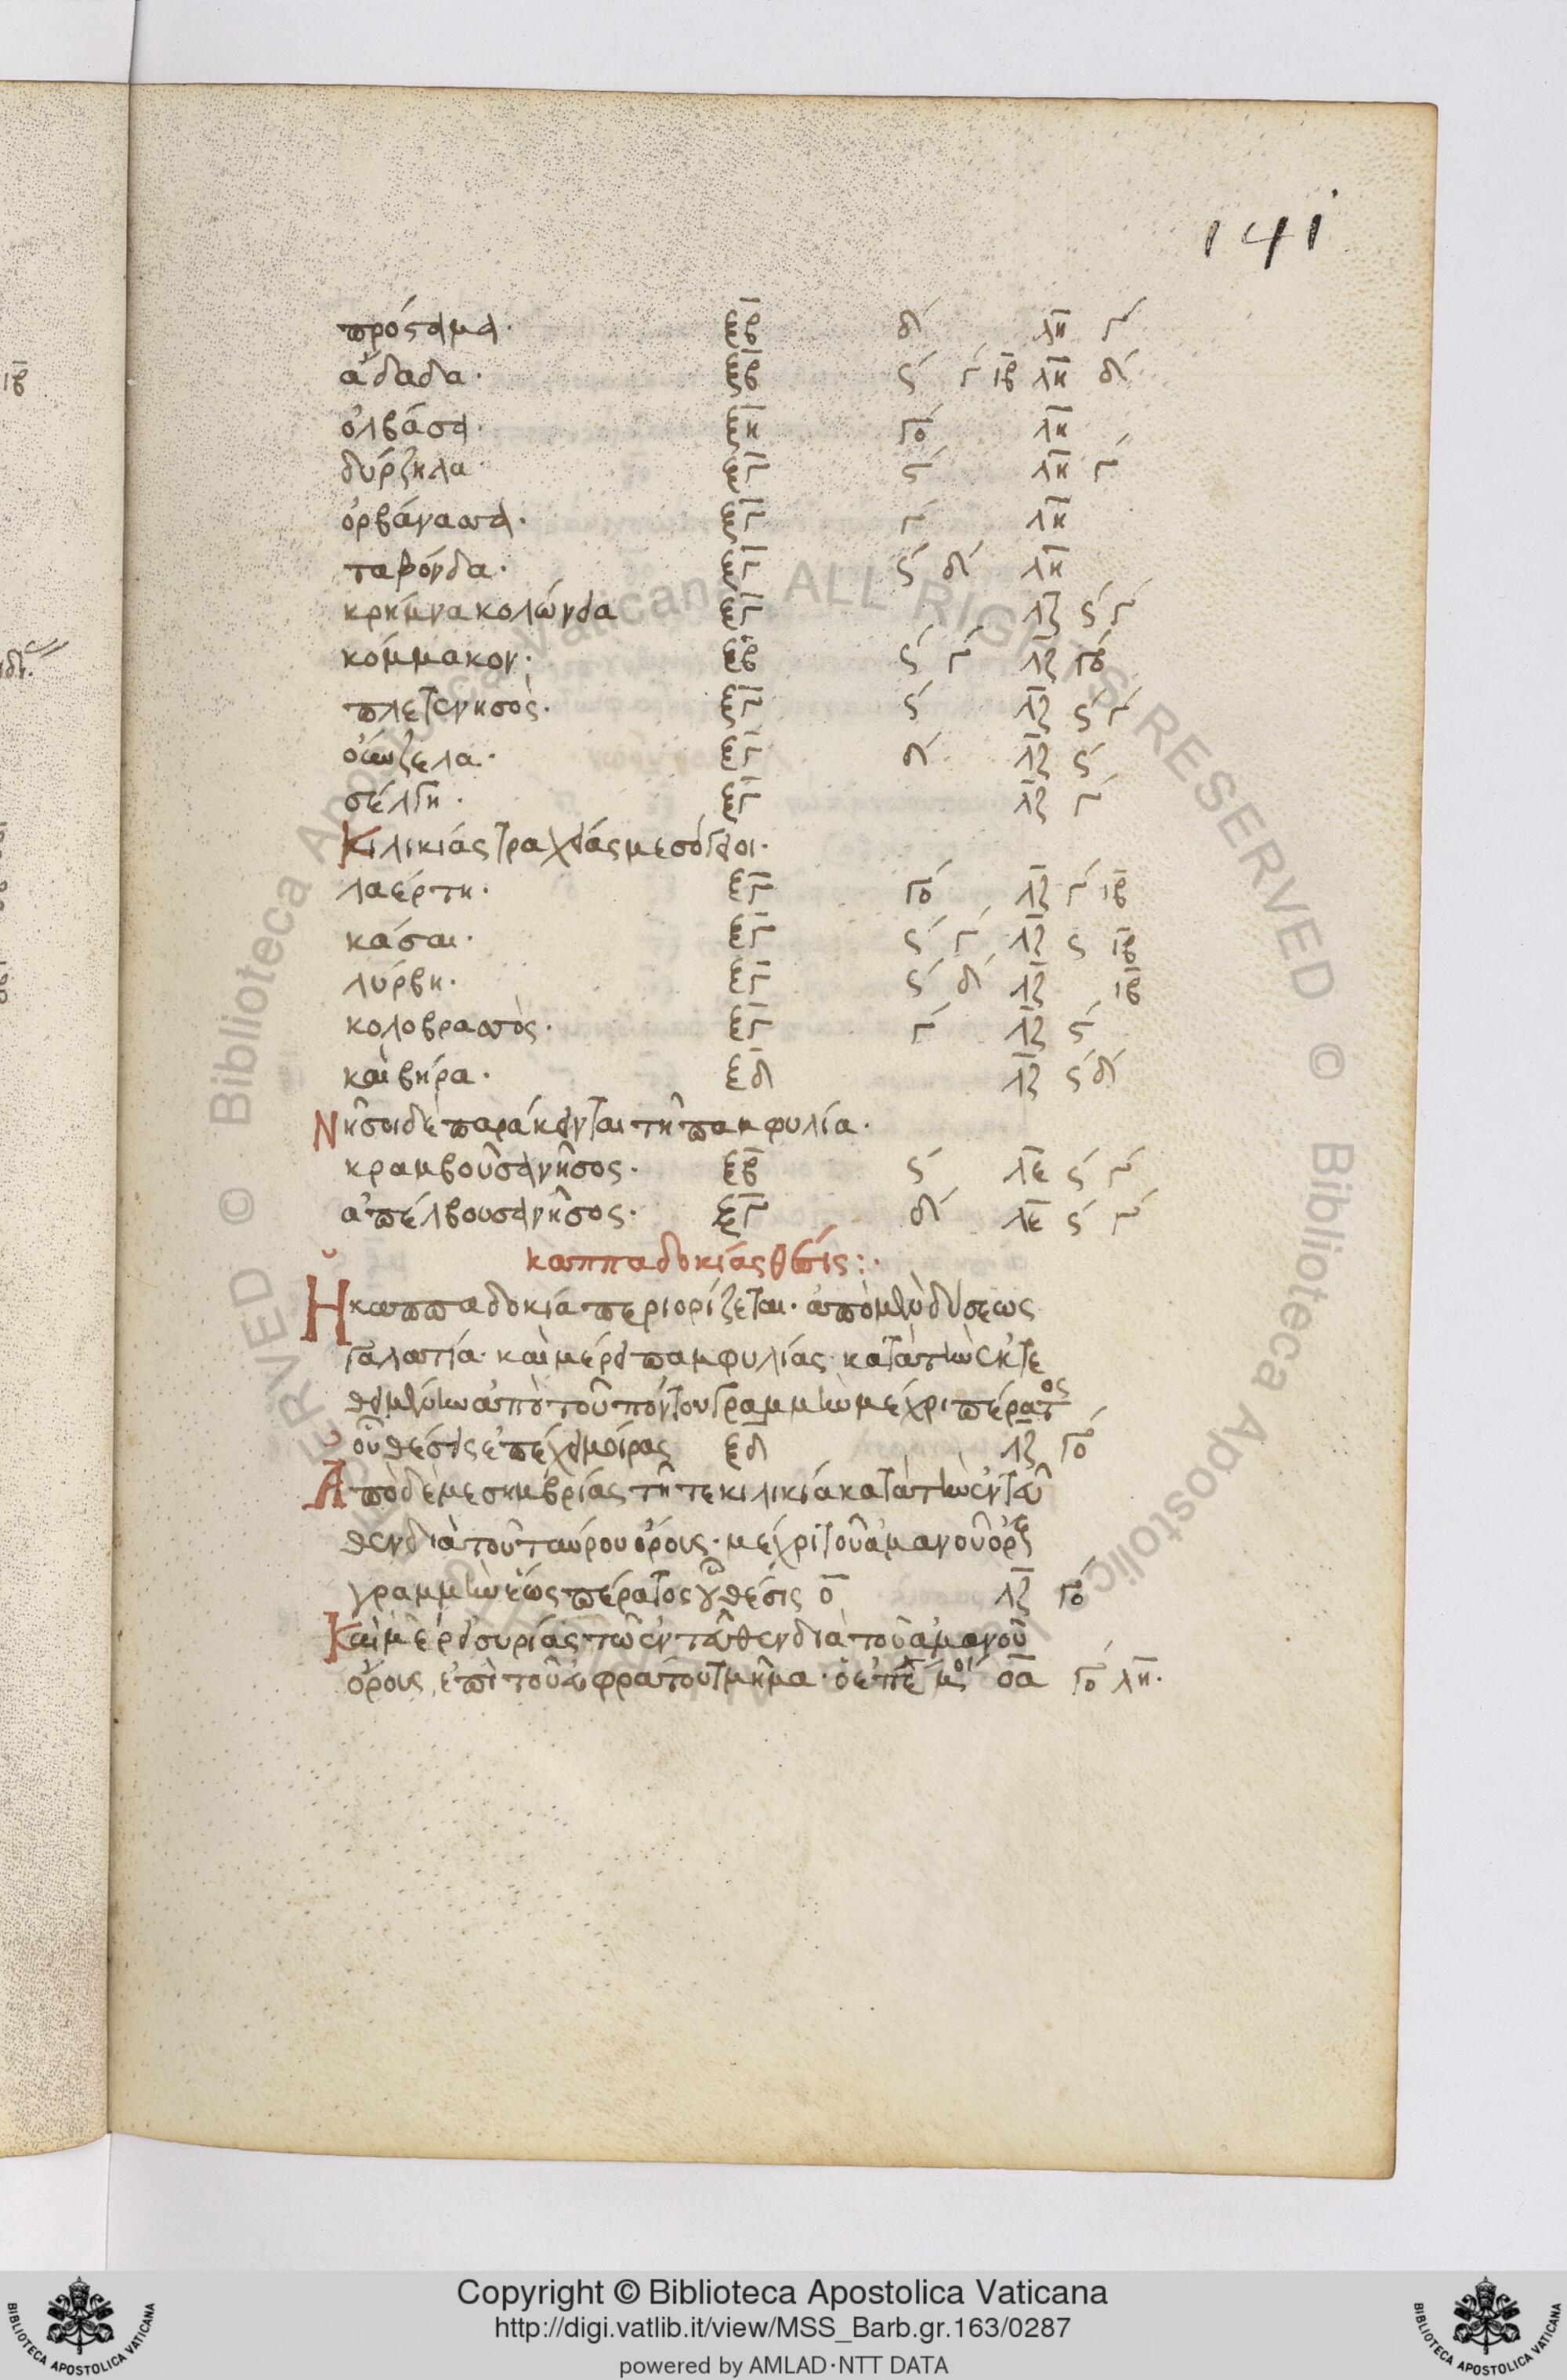 141
πρόσταμα· ξβ δ´ λη γ´
ἄδαδα· ξβ ς´ γ´ ιβ λη δ´
ὀλβάσα· ξη γο´ λη
δύρζηλα ξγ ς´ λη γ´
ὀρβάναπα· ξγ γ´ λη
ταβόνδα· ξγ ς´ δ´ λη
κρήμνα κολώνεια ξγ λζ ς´ γ´
κόμμακον· ξβ ς´ γ´ λζ γο´
πλετενησὸς· ξγ ς´ λζ ς´ γ´
οὐώζελα· ξγ δ´ λζ ς´
σέλγη· ξγ λζ γ´
Κιλικίας τραχείας μεσόγειοι·
λαέρτη· ξγ γο´ λζ γ´ ιβ
κάσαι· ξγ ς´ γ´ λζ ς ιβ
λύρβη· ξγ ς´ δ´ λζ ιβ
κολοβρασὸς· ξγ γ´ λζ ς´
καὶ βήρα· ξδ λζ ς´ δ´
Νῆσοι δὲ παράκεινται τῆ παμφυλία·
κραμβοῦσα νῆσος· ξβ ς´ λε ς´ γ´
ἀπέλβουσα νῆσος· ξγ δ´ λε ς´ γ´
καππαδοκίας θέσις:·
Ἡ καππαδοκία περιορίζεται· ἀπὸ μὲν δύσεως
γαλατία· καὶ μέρει παμφυλίας· κατὰ τὴν ἐκτε
θειμένην ἀπὸ τοῦ πόντου γραμμὴν μέχρι πέρατος
οὗ θέσις ἐπέχει μοίρας ξδ λζ γο´
Ἀπὸ δὲ μεσημβρίας τῆ τε κιλικία κατὰ τὴν ἐνταῦ
θεν διὰ τοῦ ταύρου ὄρους· μέχρι τοῦ ἀμανοῦ ὄρους
γραμμὴν ἕως πέρατος οὗ θέσις ο λζ γο´
Καὶ μέρει συρίας τῶ ἐνταῦθεν διὰ τοῦ ἀμανοῦ
ὄρους ἐπὶ τοῦ εὐφράτου τμῆμα· ὃ ἐπέχει μοί οα γο´ λη·
Copyright © Biblioteca Apostolica Vaticana
http://digi.vatlib.it/view/MSS_Barb.gr.163/0287
powered by AMLAD·NTT DATA